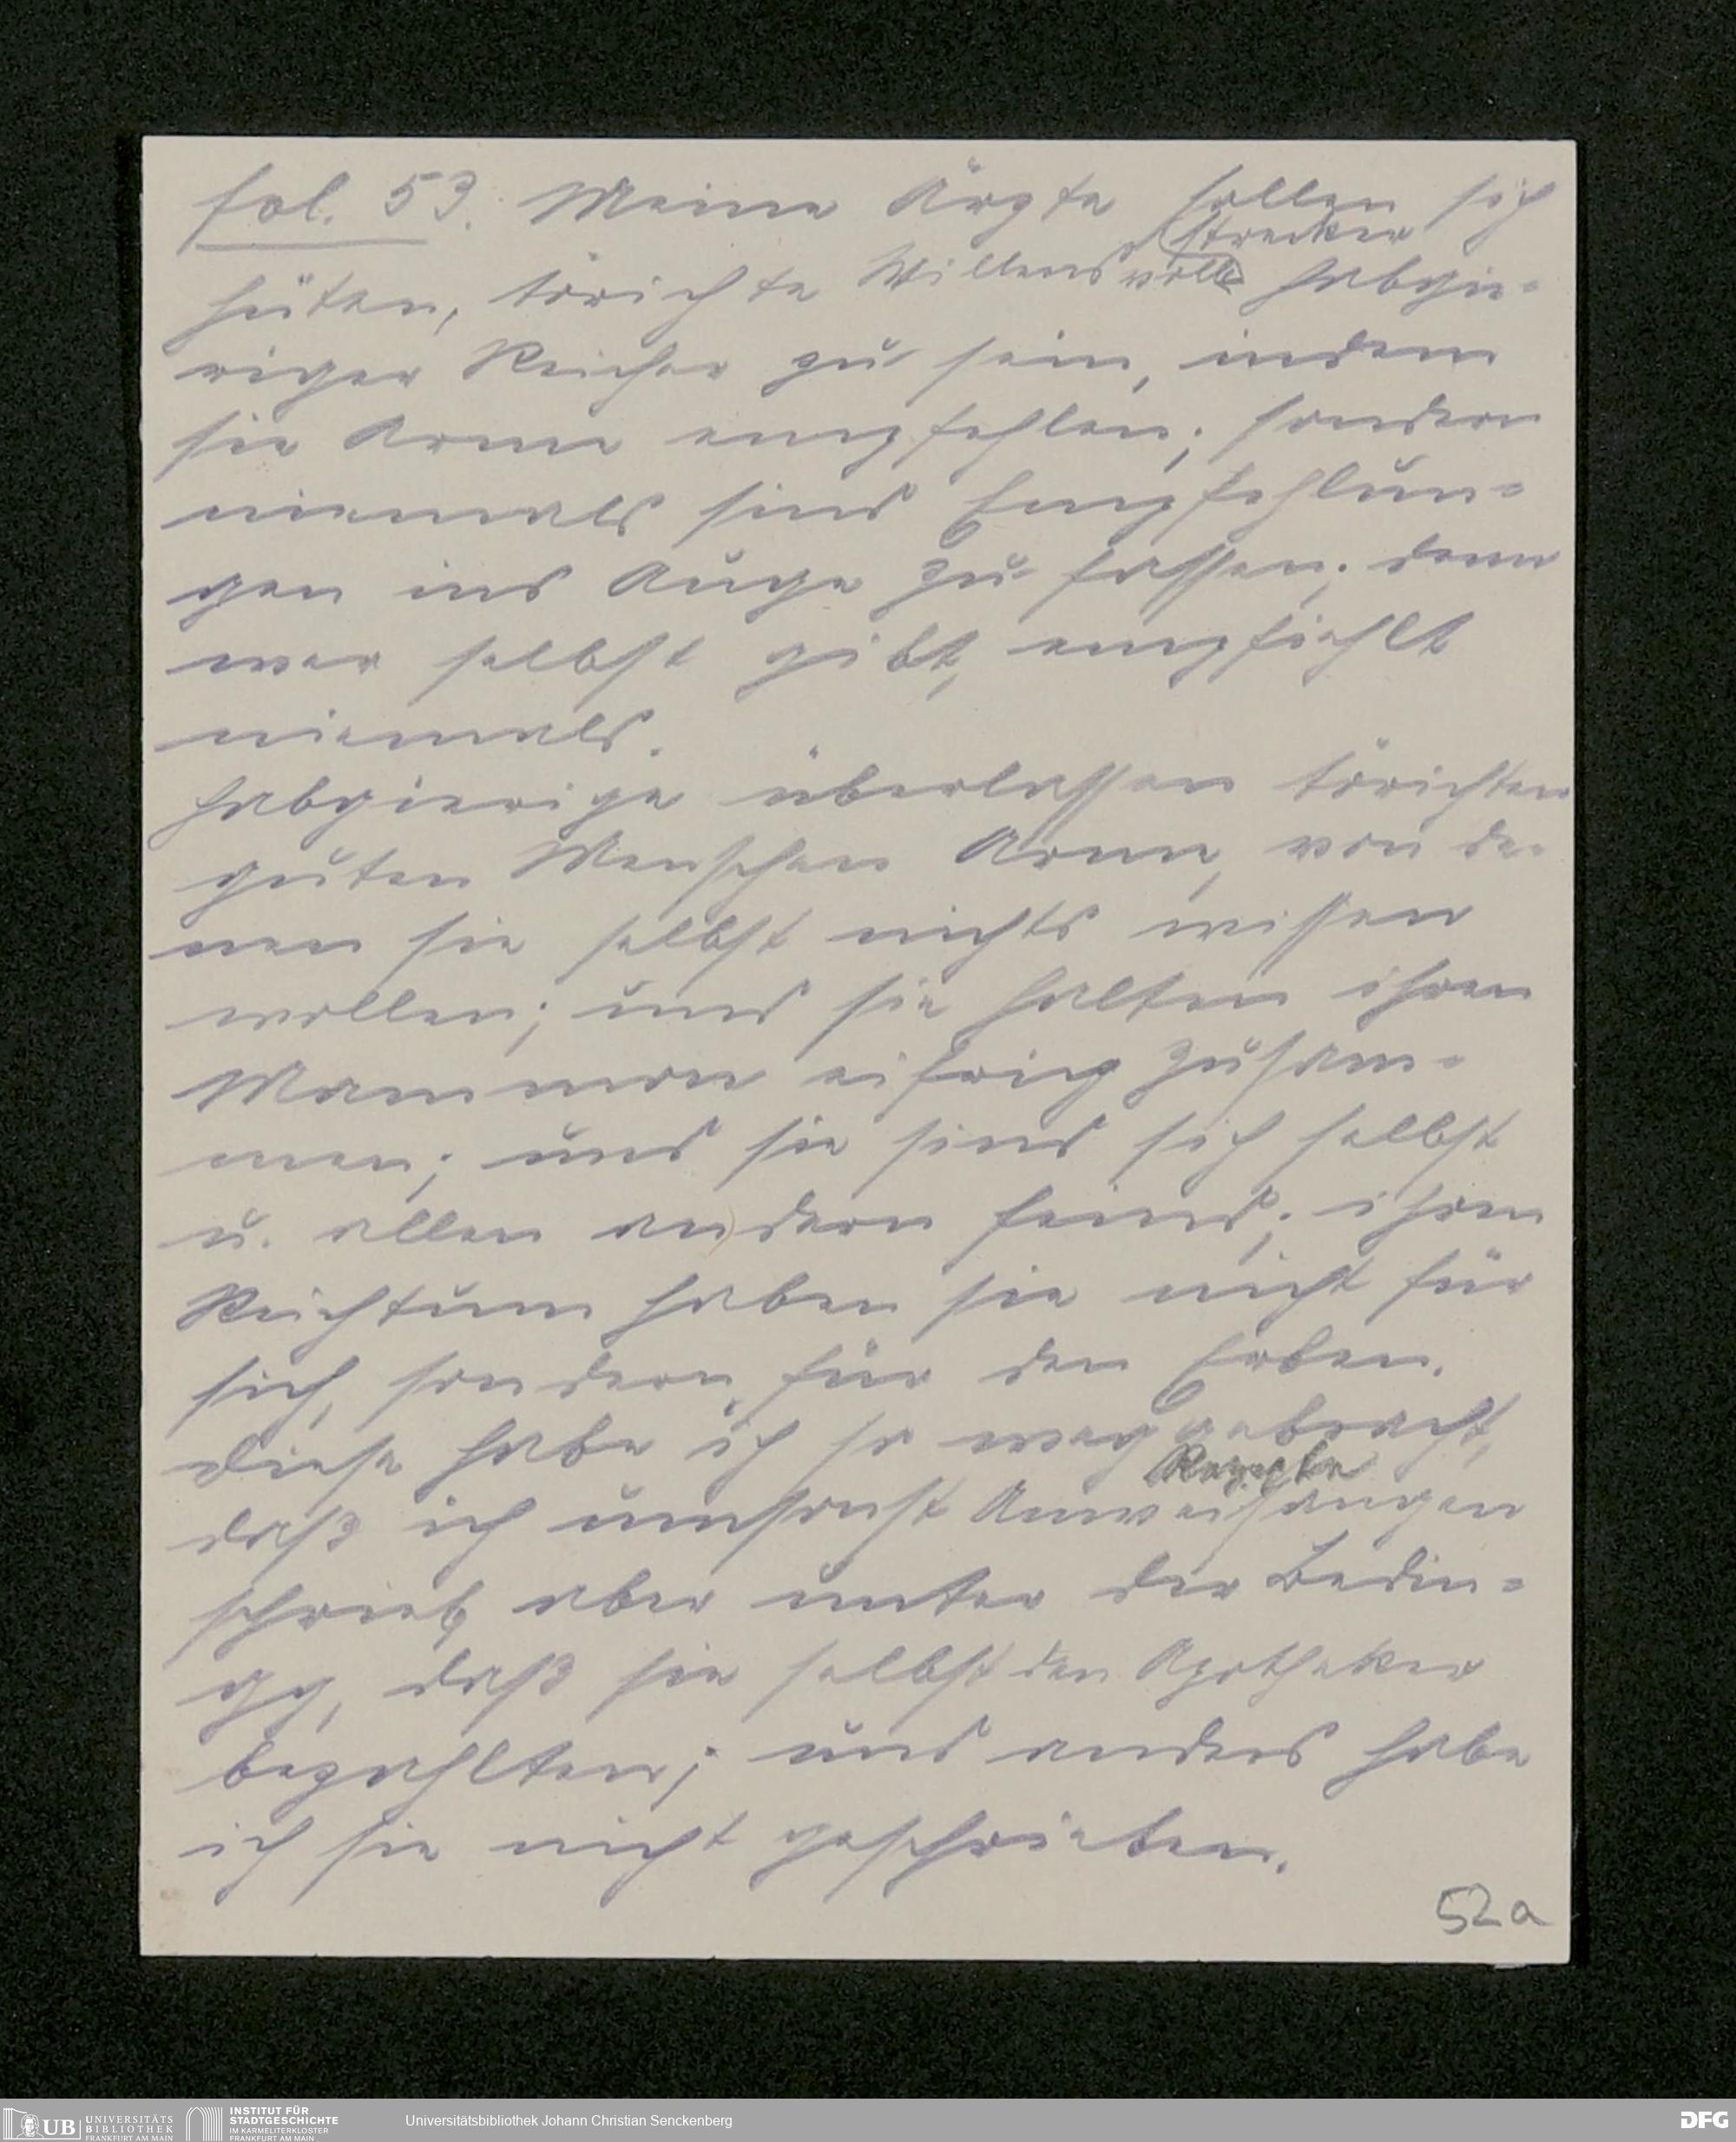 fol. 53. Meine Ärzte sollen sich
strecker
hüten, törichte Willensvoll habgie-
riger Reicher zu sein, indem
sie Arme empfehlen; sondern
niemals sind Empfehlun-
gen ins Auge zu fassen; denn
wer selbst gibt, empfiehlt
niemals.
Habgierige überlassen törichten
guten Menschen Arme, von de-
nen sie selbst nichts wissen
wollen; und sie halten ihren
Mammon eifrig zusam-
men; und sie sind sich selbst
u. allen andern feind; ihren
Reichtum haben sie nicht für
sich, sondern für den Erben.
Diese habe ich so weggebracht,
Rezepte
daß ich umsonst Anweisungen
schrieb, aber unter der Bedin-
gg, daß sie selbst den Apotheker
bezahlten; und anders habe
ich sie nicht geschrieben.
52a
UB UNIVERSITÄTS
BIBLIOTHEK
FRANKFURT AM MAIN
INSTITUT FÜR
STADTGESCHICHTE
IM KARMELITERKLOSTER
FRANKFURT AM MAIN
Universitätsbibliothek Johann Christian Senckenberg
DFG